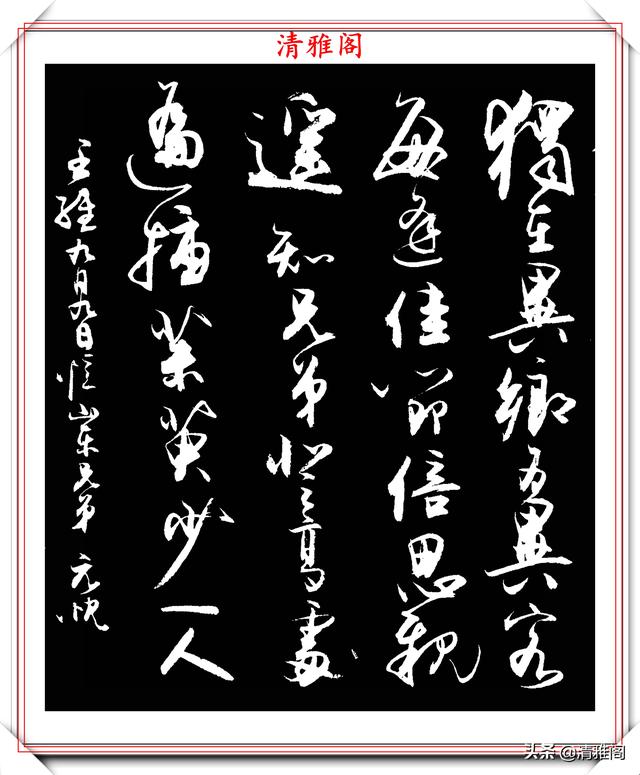 清雅阁
獨在異鄉為異客
每逢佳節倍思親
遥知兄弟登高處
遍插茱萸少一人
王維九月九日憶山東兄弟 元忱
头条 @清雅阁